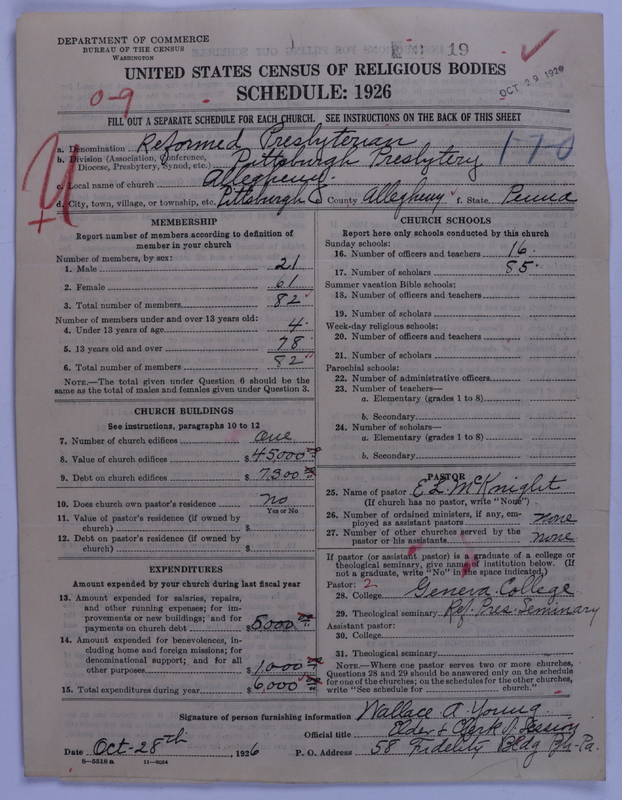 DEPARTMENT OF COMMERCE
BUREAU OF THE CENSUS
WASHINGTON
19
UNITED STATES CENSUS OF RELIGIOUS BODIES
OCT 29 1926
SCHEDULE: 1926
0-9
FILL OUT A SEPARATE SCHEDULE FOR EACH CHURCH. SEE INSTRUCTIONS ON THE BACK OF THIS SHEET
a. Denomination Reformed Presbyterian
b. Division (Association, Conference, Diocese, Presbytery, Synod, etc.) Pittsburgh Presbytery
170
c. Local name of church Allegheny
d. City, town, village, or township, etc. Pittsburgh County Allegheny f. State Penna
MEMBERSHIP
Report number of members according to definition of
member in your church
Number of members, by sex:
1. Male 21
2. Female 61
3. Total number of members 82
Number of members under and over 13 years old:
4. Under 13 years of age 4
5. 13 years old and over 78
6. Total number of members 82
NOTE.—The total given under Question 6 should be the
same as the total of males and females given under Question 3.
CHURCH BUILDINGS
See instructions, paragraphs 10 to 12
7. Number of church edifices One
8. Value of church edifices $ 45000
9. Debt on church edifices $ 7300
10. Does church own pastor's residence No
Yes or No
11. Value of pastor's residence (if owned by
church) $
12. Debt on pastor's residence (if owned by
church) $
EXPENDITURES
Amount expended by your church during last fiscal year
13. Amount expended for salaries, repairs,
and other running expenses; for im-
provements or new buildings; and for
payments on church debt $ 5000
14. Amount expended for benevolences, in-
cluding home and foreign missions; for
denominational support; and for all
other purposes $ 1,000
15. Total expenditures during year $ 6000
CHURCH SCHOOLS
Report here only schools conducted by this church
Sunday schools:
16. Number of officers and teachers 16
17. Number of scholars 85
Summer vacation Bible schools:
18. Number of officers and teachers
19. Number of scholars
Week-day religious schools:
20. Number of officers and teachers
21. Number of scholars
Parochial schools:
22. Number of administrative officers
23. Number of teachers—
a. Elementary (grades 1 to 8)
b. Secondary
24. Number of scholars—
a. Elementary (grades 1 to 8)
b. Secondary
PASTOR
25. Name of pastor E L McKnight
(If church has no pastor, write "None")
26. Number of ordained ministers, if any, em-
ployed as assistant pastors none
27. Number of other churches served by the
pastor or his assistants none
If pastor (or assistant pastor) is a graduate of a college or
theological seminary, give name of institution below. (If
not a graduate, write "No" in the space indicated.)
Pastor: 2
28. College Geneva College
29. Theological seminary Ref. Pres. Seminary
Assistant pastor:
30. College
31. Theological seminary
NOTE.—Where one pastor serves two or more churches,
Questions 28 and 29 should be answered only on the schedule
for one of the churches; on the schedules for the other churches,
write "See schedule for church."
Signature of person furnishing information Wallace A. Young
Official title Elder & Clerk of Session
Date Oct-28th, 1926 P. O. Address 58 Fidelity Bldg Pa.
8—5518a 11—9084